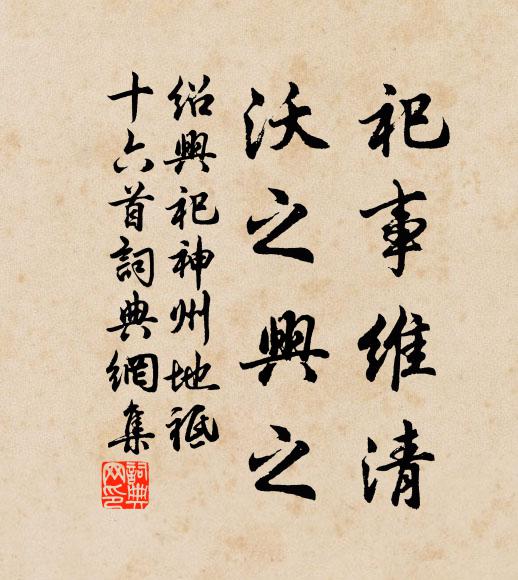 祀事維清
沃之興之
紹興祀神州地祇
十六首詞典網集
詞典網印